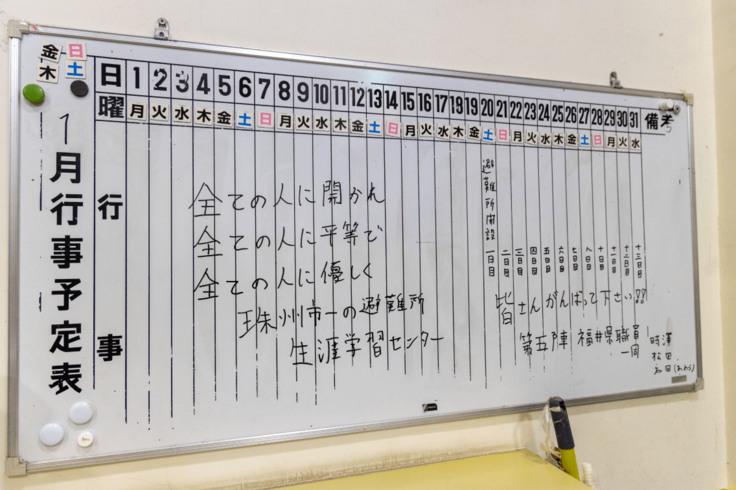 金 日
木 土
日 1 2 3 4 5 6 7 8 9 10 11 12 13 14 15 16 17 18 19 20 21 22 23 24 25 26 27 28 29 30 31 備考
曜 月 火 水 木 金 土 日 月 火 水 木 金 土 日 月 火 水 木 金 土 日 月 火 水 木 金 土 日 月 火 水
1月行事予定表
行事
全ての人に開かれ
全ての人に平等で
全ての人に優しく
珠洲市一の避難所
生涯学習センター
避難所開設 一日目
二日目 三日目 四日目 五日目 六日目 七日目 八日目 十日目 十一日目 十二日目 十三日目
皆さんがんばって下さい!!
第五陣 福井県職員一同